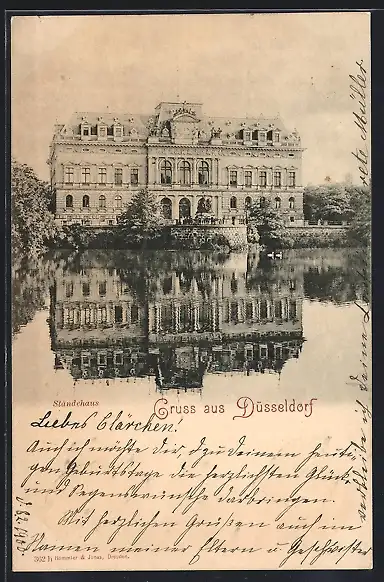 Ständehaus
Gruss aus Düsseldorf
Liebes Clärchen!
Auch ich möchte dir zu Deinem heuti-
gen Geburtstage die herzlichsten Glück
und Segenswünsche darbringen.
Mit herzlichen Grüßen auch im
Namen meiner Eltern u Geschwister
verbleibe ich Deine
Müller
362 h Römmler & Jonas, Dresden.